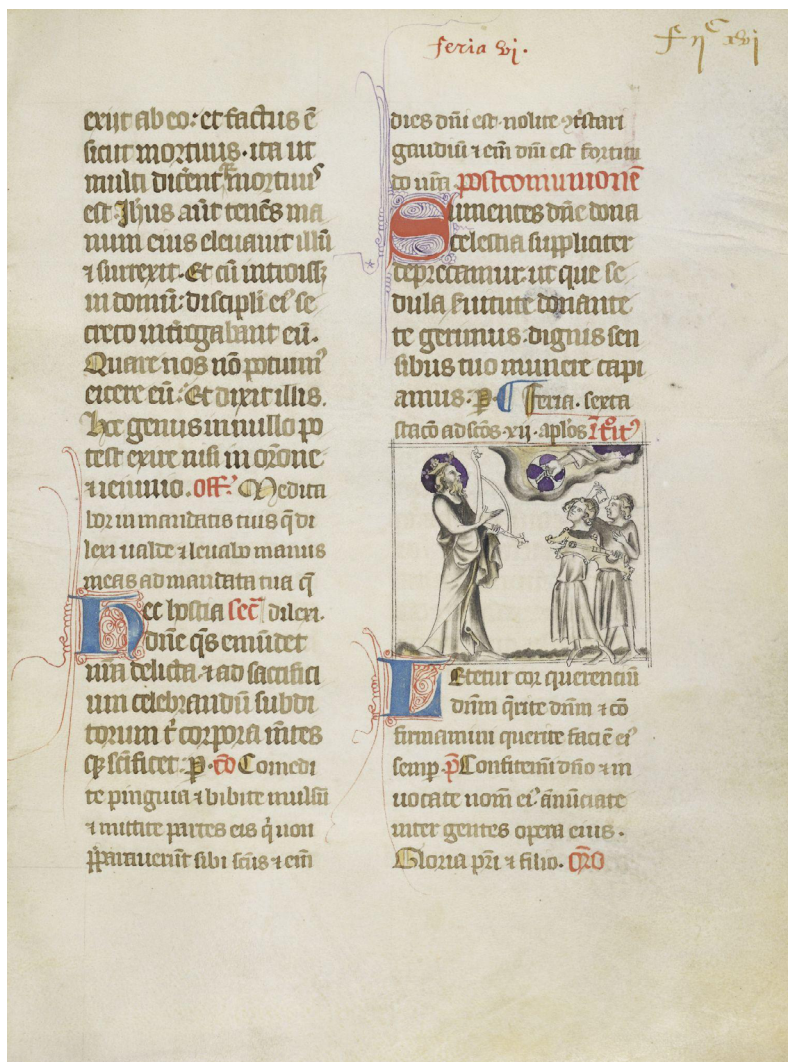 feria vi.
exijt ab eo: et factus ē
sicut mortuus. ita ut
multi dicēnt mortuus
est Jhus aūt tenēs ma
num eius eleuauit illū
⁊ surrexit. Et cū introissꝫ
in domū: discipli ei᾽ se
creto int̄rogabant eū.
Quare nos nō potuim᾽
eicere eū. Et dixit illis.
Hoc genus in nullo po
test exire nisi in orōne
⁊ ieiunio. off̄. Medita
bor in mandatis tuis q̄ di
lexi ualde ⁊ leuabo manus
meas ad mandata tua q̄
Hec hostia sec̄ dilexi.
dn̄e q̄s emūdet
nr̄a delicta. ⁊ ad sacrifici
um celebrandū subdi
torum t̄ corpora m̄tes
qꝫ sc̄ificet. p̄. cō Comedi
te pinguia ⁊ bibite mulsū
⁊ mittite partes eis q̇ non
p̄parauer̄t sibi sc̄us ⁊ eīm
dies dn̄i est. nolite 9tristari
gaudiū ⁊ eīm dn̄i est fortitu
do nr̄a postcomunionē
Sumentes dn̄e dona
celestia suppliciter
deprecamur. ut que se
dula s̄uitute donante
te gerimus. dignis sen
sibus tuo munere capi
amus. p̄. ¶ feria. sexta
stacō ad sc̄os. xij. aplōs Īt̄oit᾽
Letetur cor querenciū
dn̄m q̄rite dn̄m ⁊ cō
firmamini querite faciē ei᾽
semp̄. p̄ Confitem̄i dn̄o ⁊ in
uocate nom̄ ei᾽ ānūciate
inter gentes opera eius.
Gloria pr̄i ⁊ filio. ōr̄o